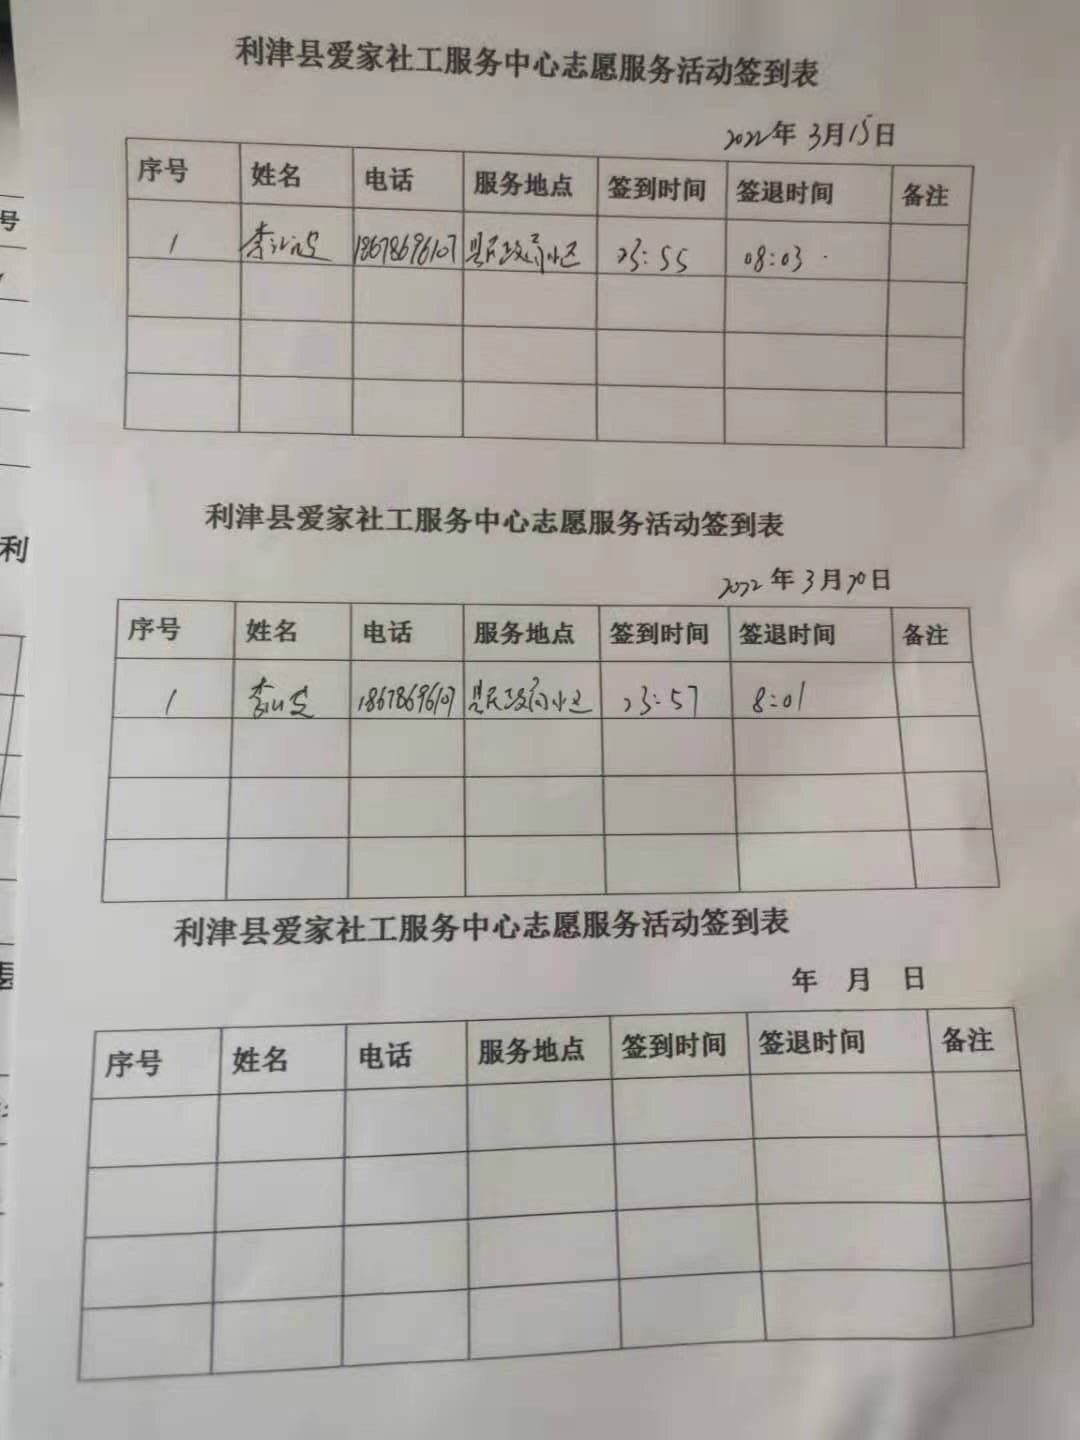 利津县爱家社工服务中心志愿服务活动签到表
2022年 3月15日
序号 姓名 电话 服务地点 签到时间 签退时间 备注
1 李 18678696107 县民政局小区 23:55 08:03
利津县爱家社工服务中心志愿服务活动签到表
2022年3月20日
序号 姓名 电话 服务地点 签到时间 签退时间 备注
1 李 18678696107 县民政局小区 23:57 8:01
利津县爱家社工服务中心志愿服务活动签到表
年 月 日
序号 姓名 电话 服务地点 签到时间 签退时间 备注
号
利